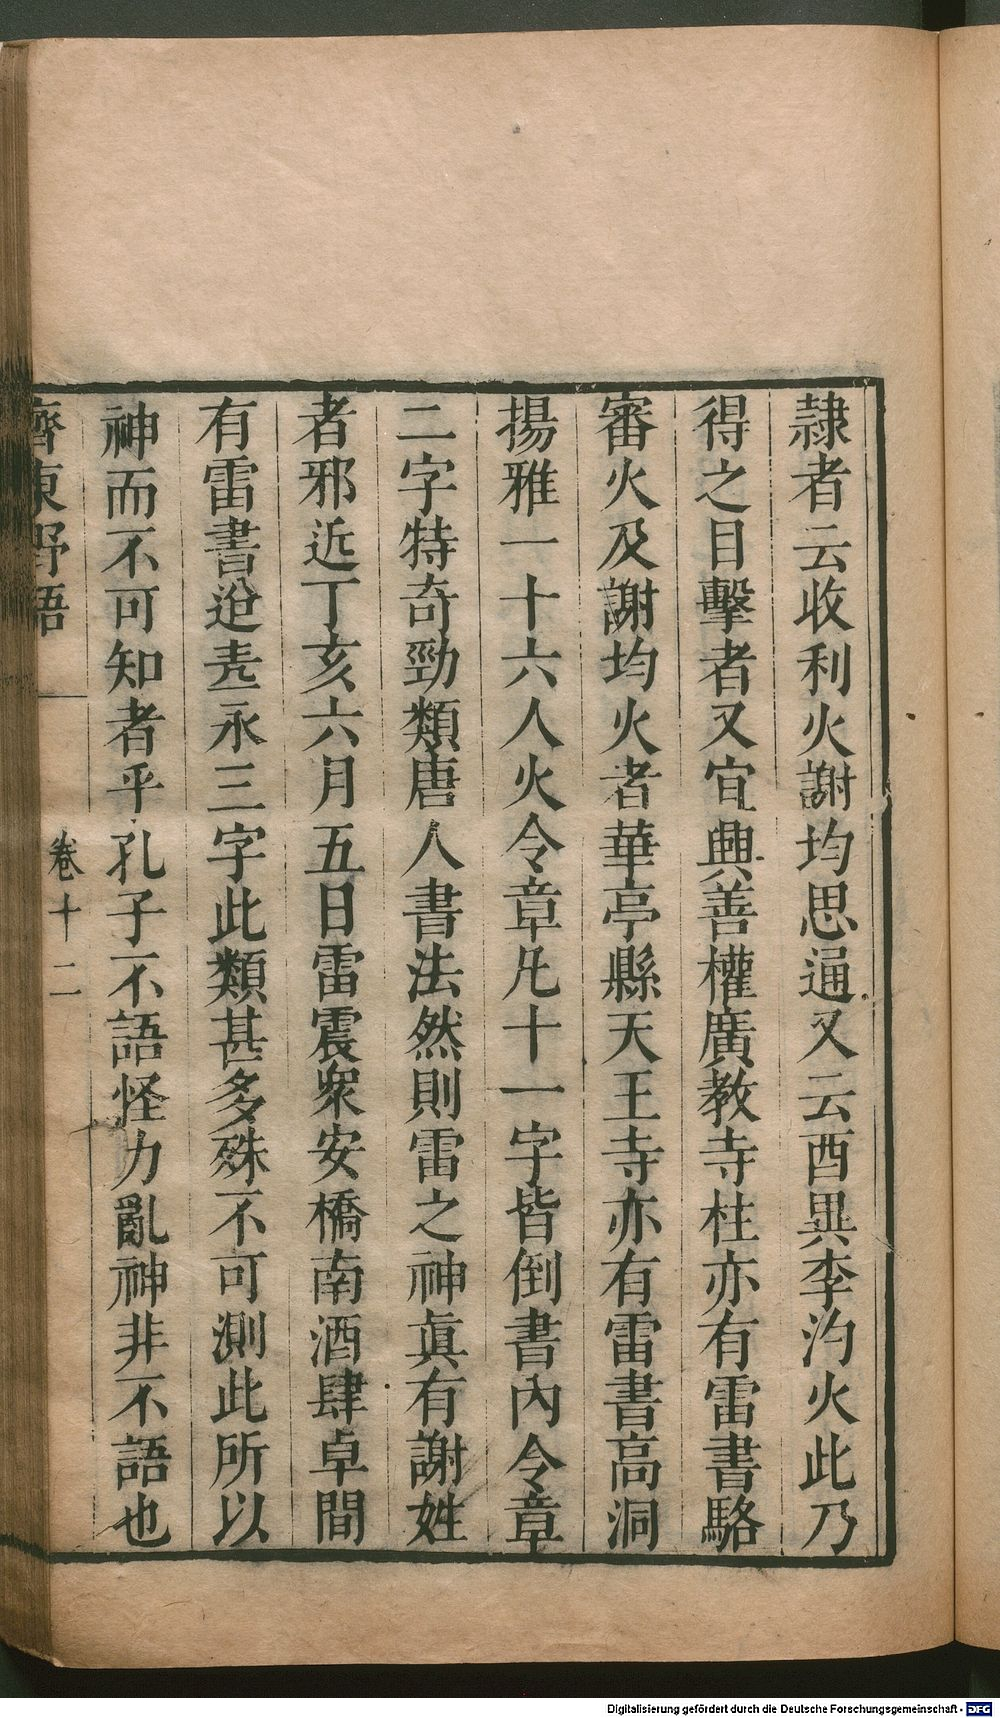 隷者云收利火謝均思通又云酉異李汋火此乃
得之目擊者又宜興善權廣教寺柱亦有雷書駱
審火及謝均火者華亭縣天王寺亦有雷書高洞
揚雅一十六人火令章凡十一字皆倒書內令章
二字特奇勁類唐人書法然則雷之神眞有謝姓
者邪近丁亥六月五日雷震衆安橋南酒肆卓間
有雷書逸永三字此類甚多殊不可測此所以
神而不可知者乎孔子不語怪力亂神非不語也
齊東野語 卷十二
Digitalisierung gefördert durch die Deutsche Forschungsgemeinschaft - DFG